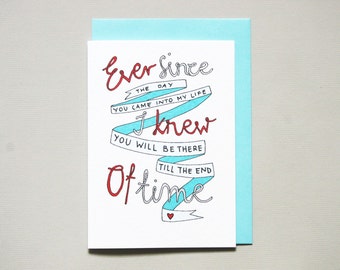 Ever since
THE DAY
YOU CAME INTO MY LIFE
I knew
YOU WILL BE THERE
TILL THE END
Of time